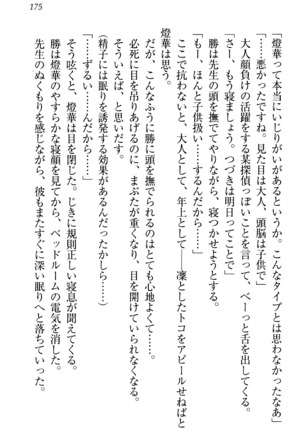 175
「燈華って本当にいじりがいがあるというか。こんなタイプとは思わなかったなあ」
「……悪かったですね。見た目は大人、頭脳は子供で」
大人顔負けの活躍をする某探偵っぽいことを言って、べーっと舌を出してくる。
「さー、もう寝ましょう。つづきは明日ってことで」
勝は先生の頭を撫でてやりながら、寝つかせようとする。
「もー、ほんと子供扱い……するんだから……」
燈華は思う。
ここで抗わないと、大人として、年上として――凜としたトコをアピールせねばと
だが、こんなふうに勝に頭を撫でられるのはとても心地よくて……
必死に目を吊りあげるのに、まぶたが重くなり、目を開けていられなくなる。
そういえば、と思いだす。
（精子には眠りを誘発する効果があるんだったかしら……）
「……ずるい……んだから……」
そう呟くと、燈華は目を閉じた。じきに規則正しい寝息が聞えてくる。
勝は燈華のやすらかな寝顔を見てから、ベッドルームの電気を消した。
先生のぬくもりを感じながら、彼もまたすぐに深い眠りへと落ちていった。